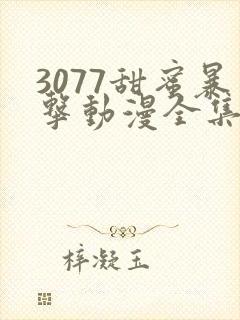 3077甜蜜暴
擊動漫全集
梓凝玉